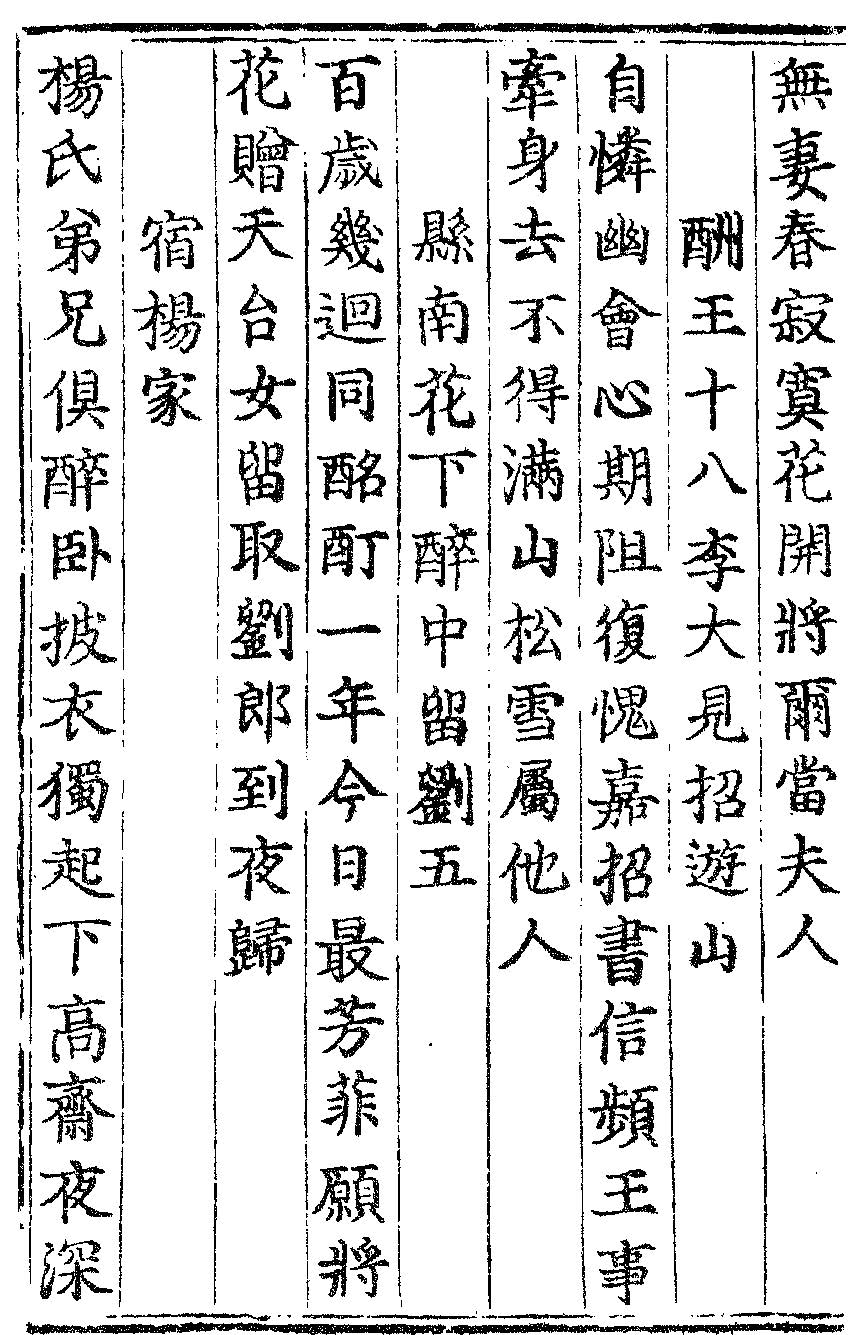 無妻春寂寞花開將爾當夫人
酬王十八李大見招遊山
自憐幽會心期阻復愧嘉招書信頻王事
牽身去不得滿山松雪屬他人
縣南花下醉中留劉五
百歲幾迴同酩酊一年今日最芳菲願將
花贈天台女留取劉郎到夜歸
宿楊家
楊氏弟兄俱醉卧披衣獨起下高齋夜深